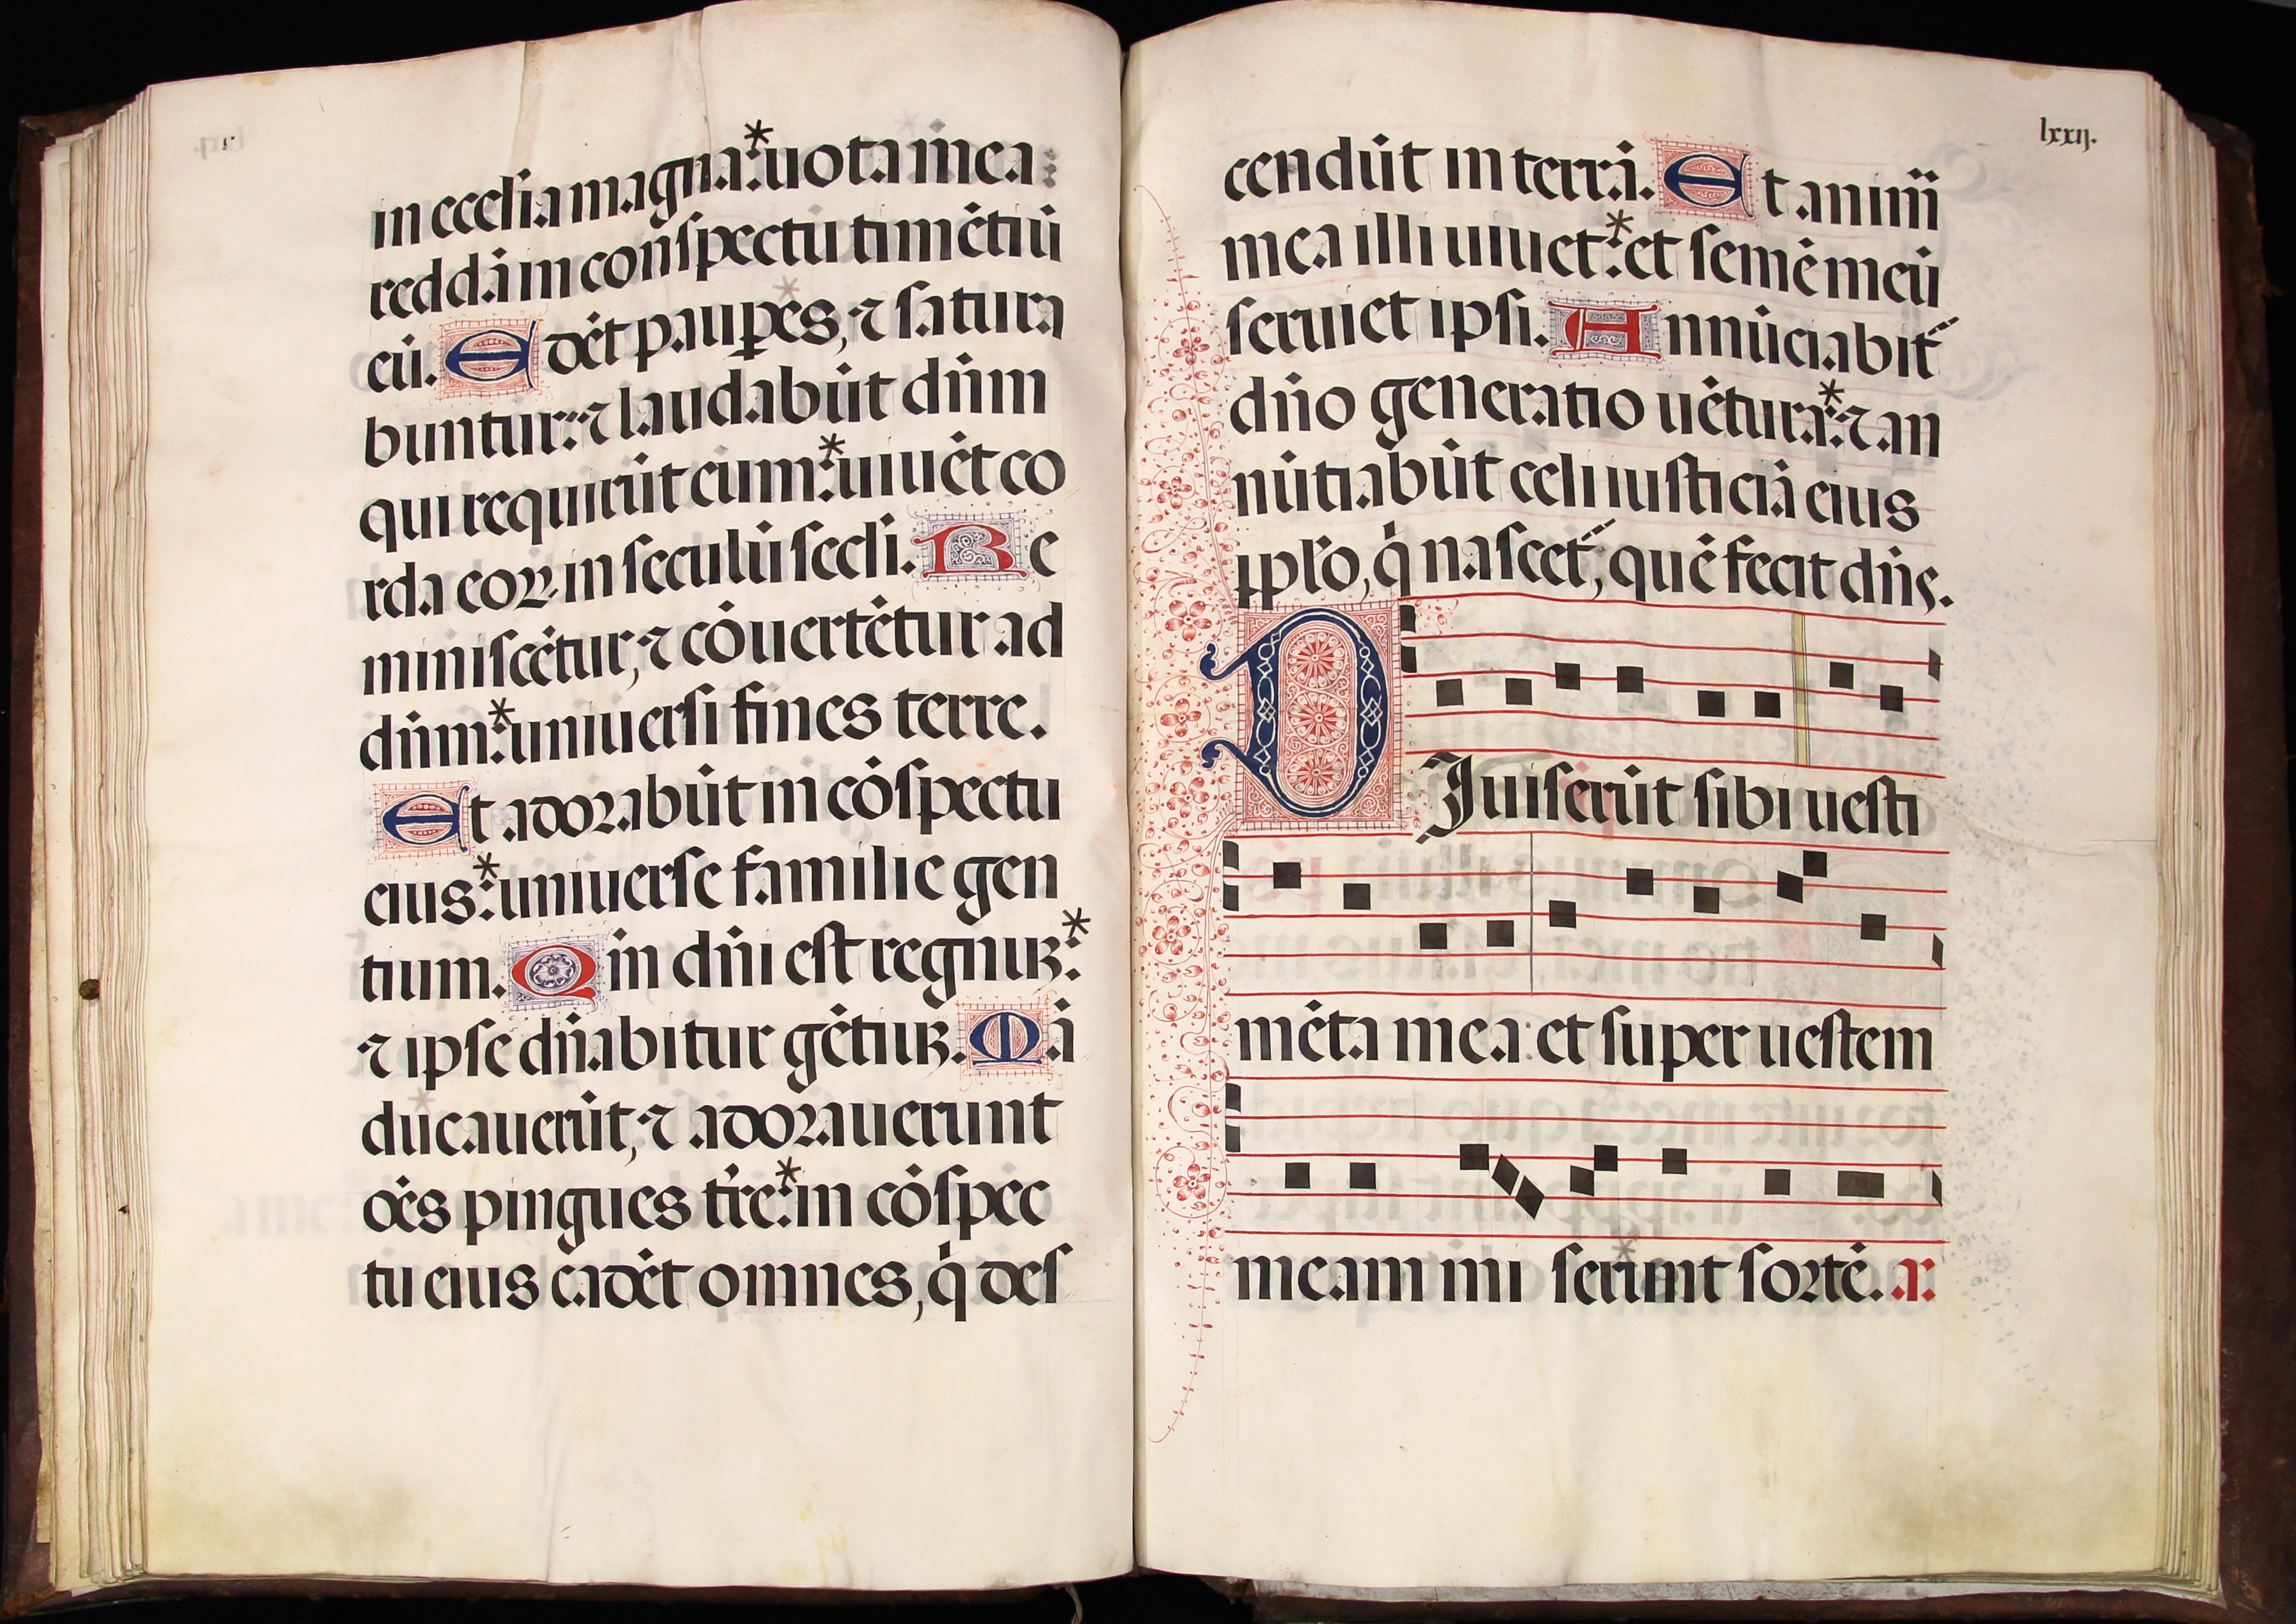 in ecclia magna:*uota mea
reddā in conspectu timētiū
eū. Edēt paupes, ⁊ satura
buntur: ⁊ laudabūt dn̄m
qui requirūt eum:*uiuēt co
rda eoꝝ in seculū secli. Re
miniscētur, ⁊ cōuertētur ad
dn̄m:*uniuersi fines terre.
Et adorabūt in cōspectu
eius:*uniuerse familie gen
tium. Qm̄ dn̄i est regnuꝫ:*
⁊ ipse dn̄abitur gētiuꝫ. Mā
ducauerūt, ⁊ adorauerunt
oēs pingues tr̄e:*in cōspec
tu eius cadēt omnes, q̇ des
lxxij.
cendūt in terrā. Et anim̄
mea illi uiuet:*et semē meū
seruiet ipsi. Annūciabit̄
dn̄o generatio uētura:*⁊ an
nūtiabūt celi iusticiā eius
ꝓpl̄o, q̇ nascet̄, quē fecit dn̄s.
DJuiserūt sibi uesti
mēta mea: et super uestem
meam mi serunt sortē. a: